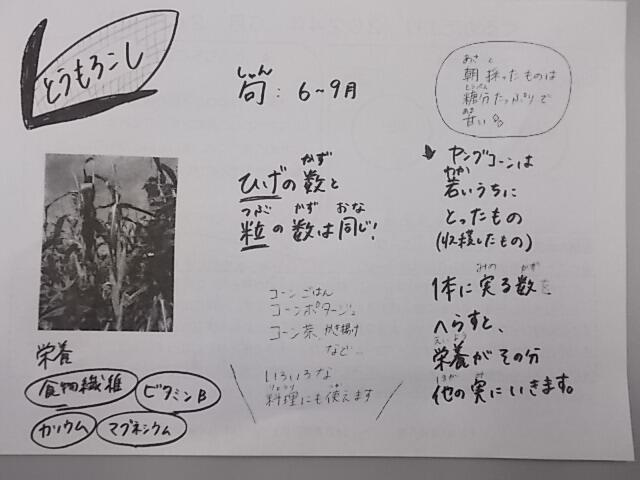 とうもろこし
しゅん
旬：6～9月
あさ と
朝採ったものは
とうぶん
糖分たっぷりで
あま
甘い
かず
ひげの数と
つぶ かず おな
粒の数は同じ!
ヤングコーンは
わか
若いうちに
とったもの
(収穫したもの)
みの かず
1本に実る数を
へらすと、
えいよう
栄養がその分
ほか み
他の実にいきます。
コーンごはん
コーンポタージュ
コーン茶、かき揚げ
など…
いろいろな
りょうり つか
料理にも使えます
栄養
食物繊維
ビタミンB
カリウム
マグネシウム